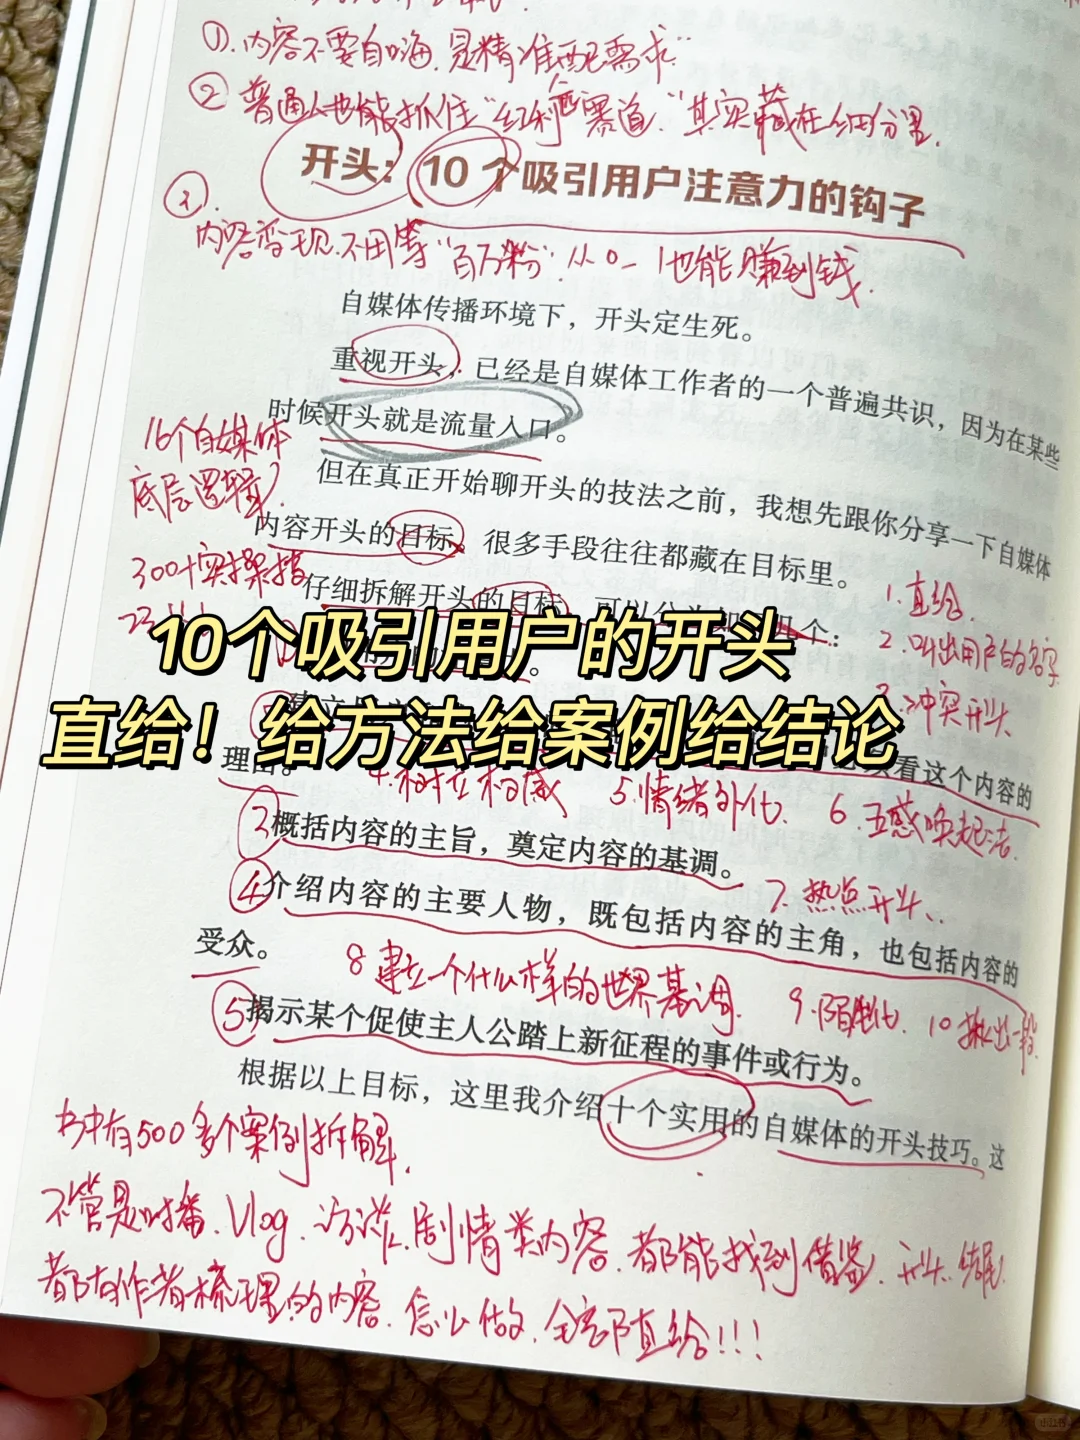 ①.内容不要自嗨,是精准匹配需求"
②普通人也能抓住"红利赛道,"其实藏在细分里.
开头:10个吸引用户注意力的钩子
③.
内容变现.不用等"百万粉".从0-1也能赚到钱.
自媒体传播环境下，开头定生死。
重视开头，已经是自媒体工作者的一个普遍共识，因为在某些
时候开头就是流量入口。
16个自媒体
但在真正开始聊开头的技法之前，我想先跟你分享一下自媒体
底层逻辑.
内容开头的目标。很多手段往往都藏在目标里。
300+实操
仔细拆解开头的目标，可以分 个：
1.直给
2.叫出用户的名字
10个吸引用户的开头
冲突开头
直给！给方法给案例给结论
看这个内容的
理由。
4.树立权威 5.情绪外化 6.五感唤起法.
③概括内容的主旨，奠定内容的基调。
7.热点开头.
④介绍内容的主要人物，既包括内容的主角，也包括内容的
受众。
8建立一个什么样的世界基调 9.陌生化. 10揪出一段
⑤揭示某个促使主人公踏上新征程的事件或行为。
根据以上目标，这里我介绍十个实用的自媒体的开头技巧。这
书中有500多个案例拆解.
不管是口播.Vlog.访谈.剧情类内容.都能找到借鉴.开头.结尾
都有作者梳理的内容.怎么做.全部直给!!!
小红书